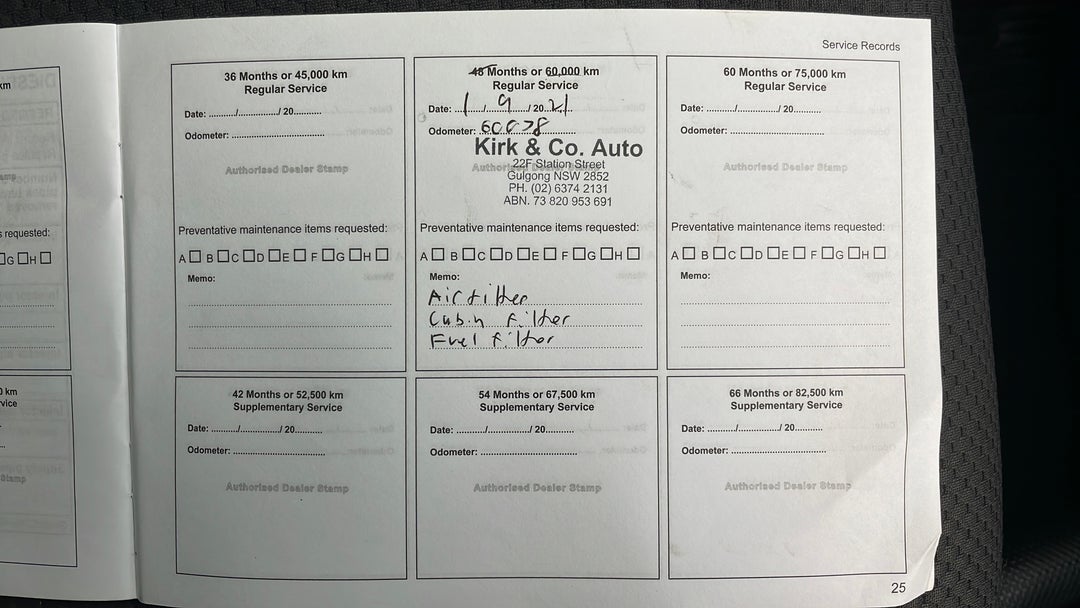 Service Records
36 Months or 45,000 km
Regular Service
Date: ........../............../ 20..........
Odometer: ..................................
Authorised Dealer Stamp
Preventative maintenance items requested:
A☐ B☐C☐D☐E☐ F☐G☐H☐
Memo:
48 Months or 60,000 km
Regular Service
Date: 1 / 9 / 20 21
Odometer: 60078
Kirk & Co. Auto
Authorised Dealer Stamp
22F Station Street
Gulgong NSW 2852
PH. (02) 6374 2131
ABN. 73 820 953 691
Preventative maintenance items requested:
A☐ B☐C☐D☐E☐ F☐G☐H☐
Memo:
Air filter
Cabin filter
Fuel filter
60 Months or 75,000 km
Regular Service
Date: ........../............../ 20..........
Odometer: ..................................
Authorised Dealer Stamp
Preventative maintenance items requested:
A☐ B☐C☐D☐E☐ F☐G☐H☐
Memo:
42 Months or 52,500 km
Supplementary Service
Date: ........../............../ 20..........
Odometer: ..................................
Authorised Dealer Stamp
54 Months or 67,500 km
Supplementary Service
Date: ........../............../ 20..........
Odometer: ..................................
Authorised Dealer Stamp
66 Months or 82,500 km
Supplementary Service
Date: ........../............../ 20..........
Odometer: ..................................
Authorised Dealer Stamp
25
km
s requested:
G☐H☐
km
Stamp